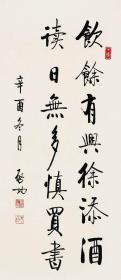 飲餘有興徐添酒
讀日無多慎買書
辛酉冬月
啟功